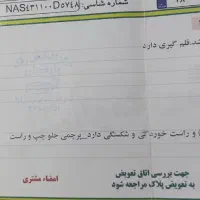 شماره شاسی: NAS431100D5748
شد. قلم گیری دارد
و راست خوردگی و شکستگی دارد_پرچمی جلو چپ و راست
جهت بررسی اتاق تعویض
به تعویض پلاک مراجعه شود
امضاء مشتری